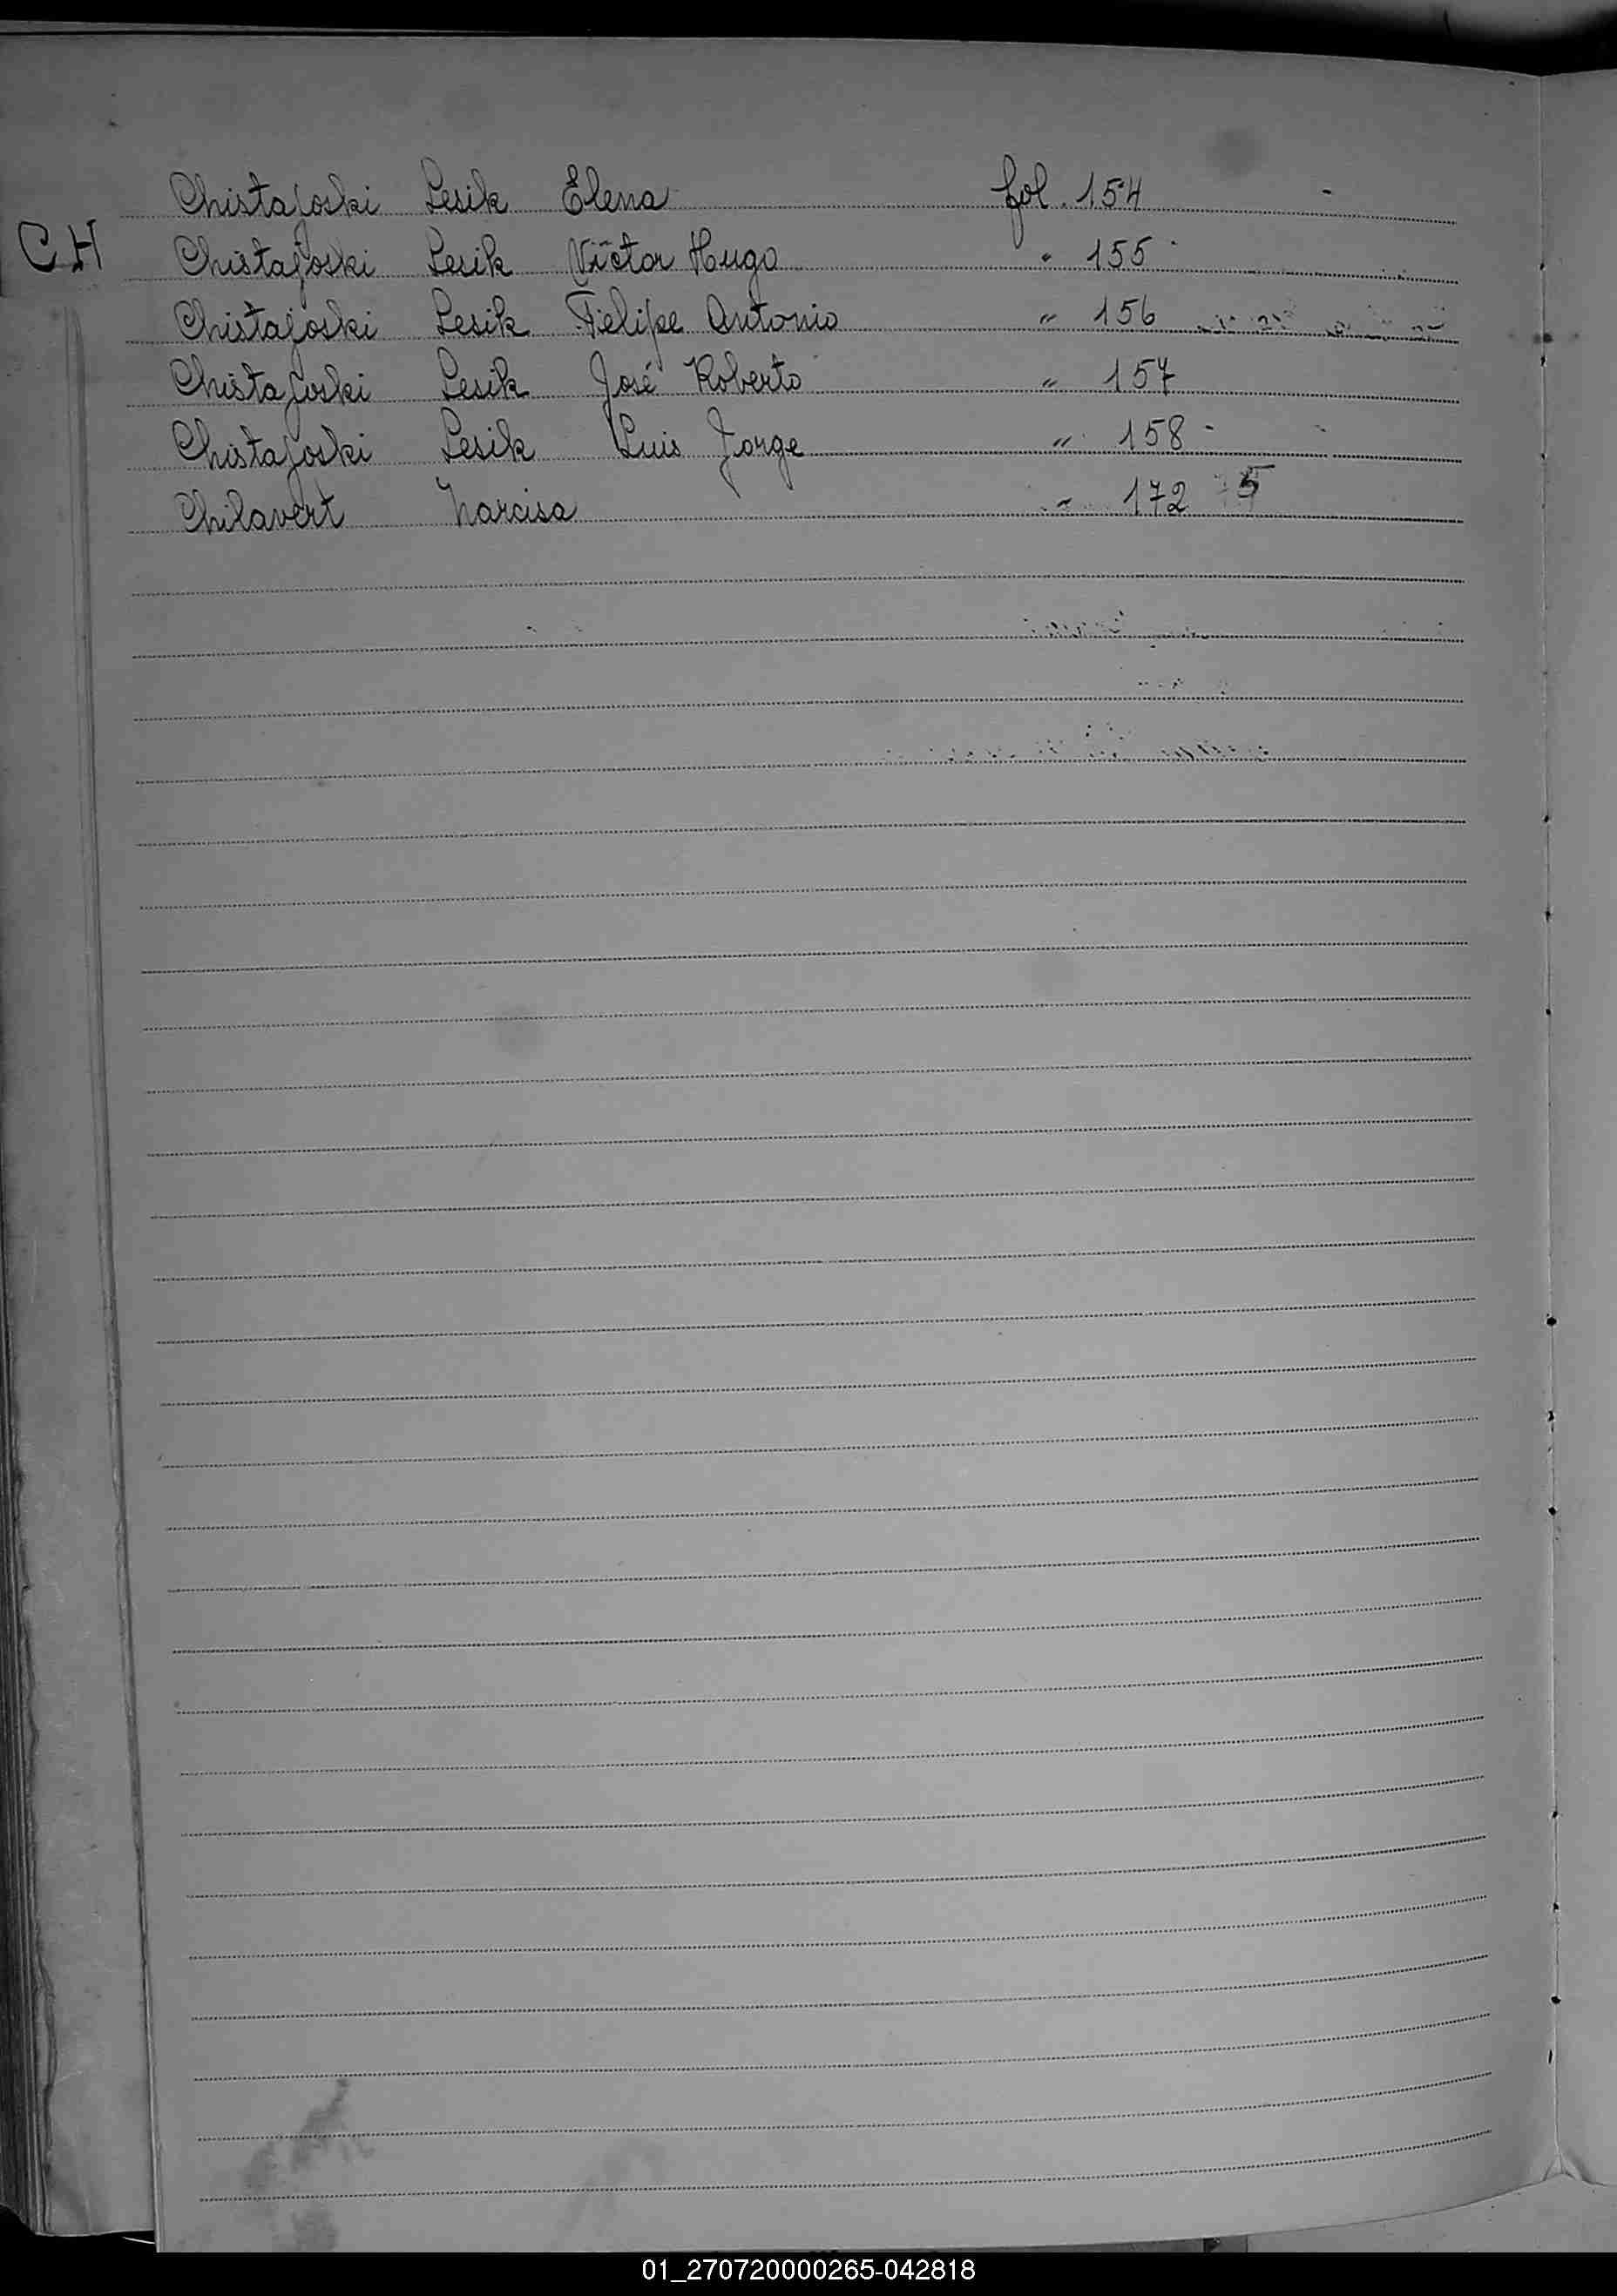 Chistajoski Lesik Elena fol. 154
CH
Chistajoski Lesik Víctor Hugo " 155
Chistajoski Lesik Felipe Antonio " 156
Chistajoski Lesik José Roberto " 157
Chistajoski Lesik Luis Jorge " 158
Chilavert Narcisa " 172 5
01_270720000265-042818